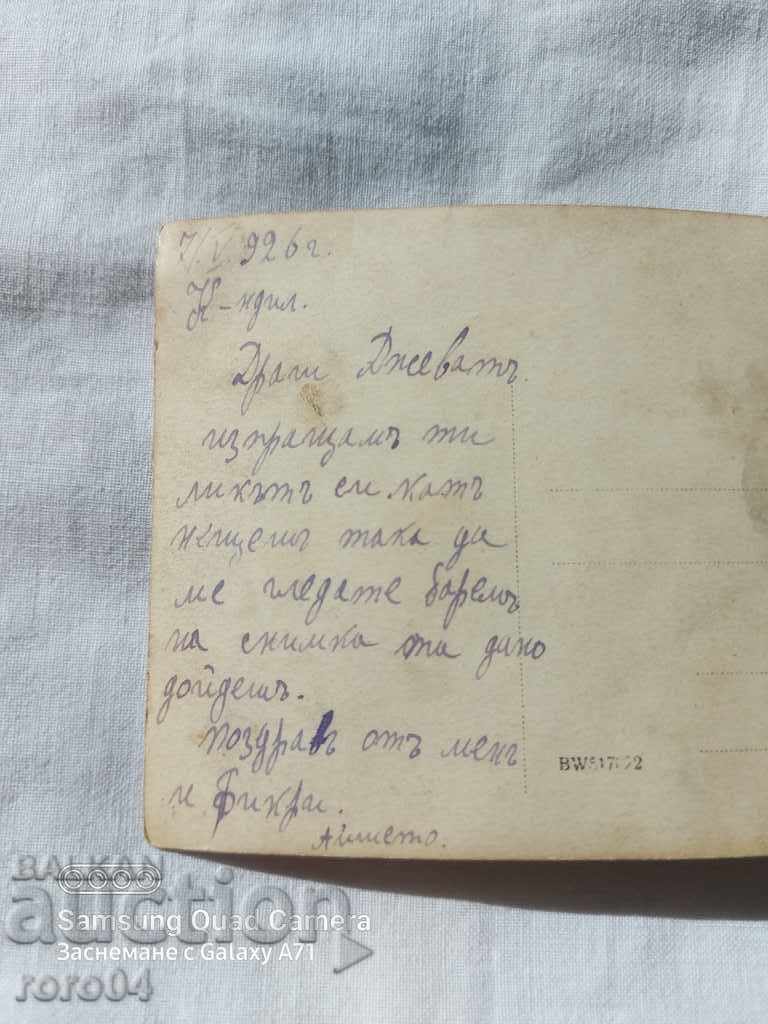 7/V 926 г.
К-ндил.
Драги Джеватъ
изпращамъ ти
ликътъ си като
нещешъ така да
ме гледате баремъ
на снимка та дано
дойдешъ.
поздравъ отъ менъ
и Фикри.
BW
BALKAN
auction
roro04
Samsung Quad Camera
Заснемане с Galaxy A71